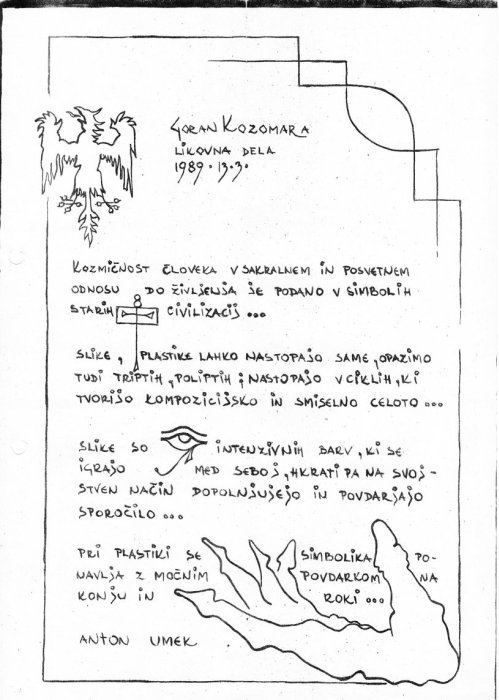 GORAN KOZOMARA
LIKOVNA DELA
1989. 13.3.
KOZMIČNOST ČLOVEKA V SAKRALNEM IN POSVETNEM
ODNOSU DO ŽIVLJENJA JE PODANO V SIMBOLIH
STARIH CIVILIZACIJ ...
SLIKE, PLASTIKE LAHKO NASTOPAJO SAME, OPAZIMO
TUDI TRIPTIH, POLIPTIH; NASTOPAJO V CIKLIH, KI
TVORIJO KOMPOZICIJSKO IN SMISELNO CELOTO ...
SLIKE SO INTENZIVNIH BARV, KI SE
IGRAJO MED SEBOJ, HKRATI PA NA SVOJ-
STVEN NAČIN DOPOLNJUJEJO IN POVDARJAJO
SPOROČILO ...
PRI PLASTIKI SE SIMBOLIKA PO-
NAVLJA Z MOČNIM POVDARKOM NA
KONJU IN ROKI ...
ANTON UMEK